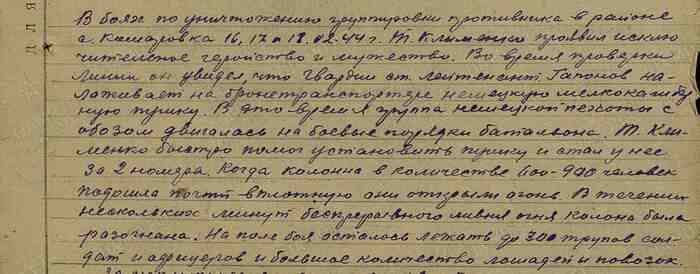 В боях по уничтожению группировки противника в районе
с. Комаровка 16, 17 и 18.02.44 г. Т. Клименко проявил исклю
чительное геройство и мужество. Во время проверки
линии он увидел, что Гвардии ст. лейтенант Гапонов на-
лаживает на бронетранспортере немецкую мелкокалибер
ную пушку. В это время группа немецкой пехоты с
обозом двигалась на боевые порядки батальона. Т. Кли-
менко быстро помог установить пушку и стал у нее
за 2 номера. Когда колонна в количестве 600-900 человек
подошла почти вплотную они открыли огонь. В течении
нескольких минут беспрерывного ливня огня колона была
разогнана. На поле боя осталось лежать до 300 трупов сол-
дат и офицеров и большое количество лошадей и повозок.